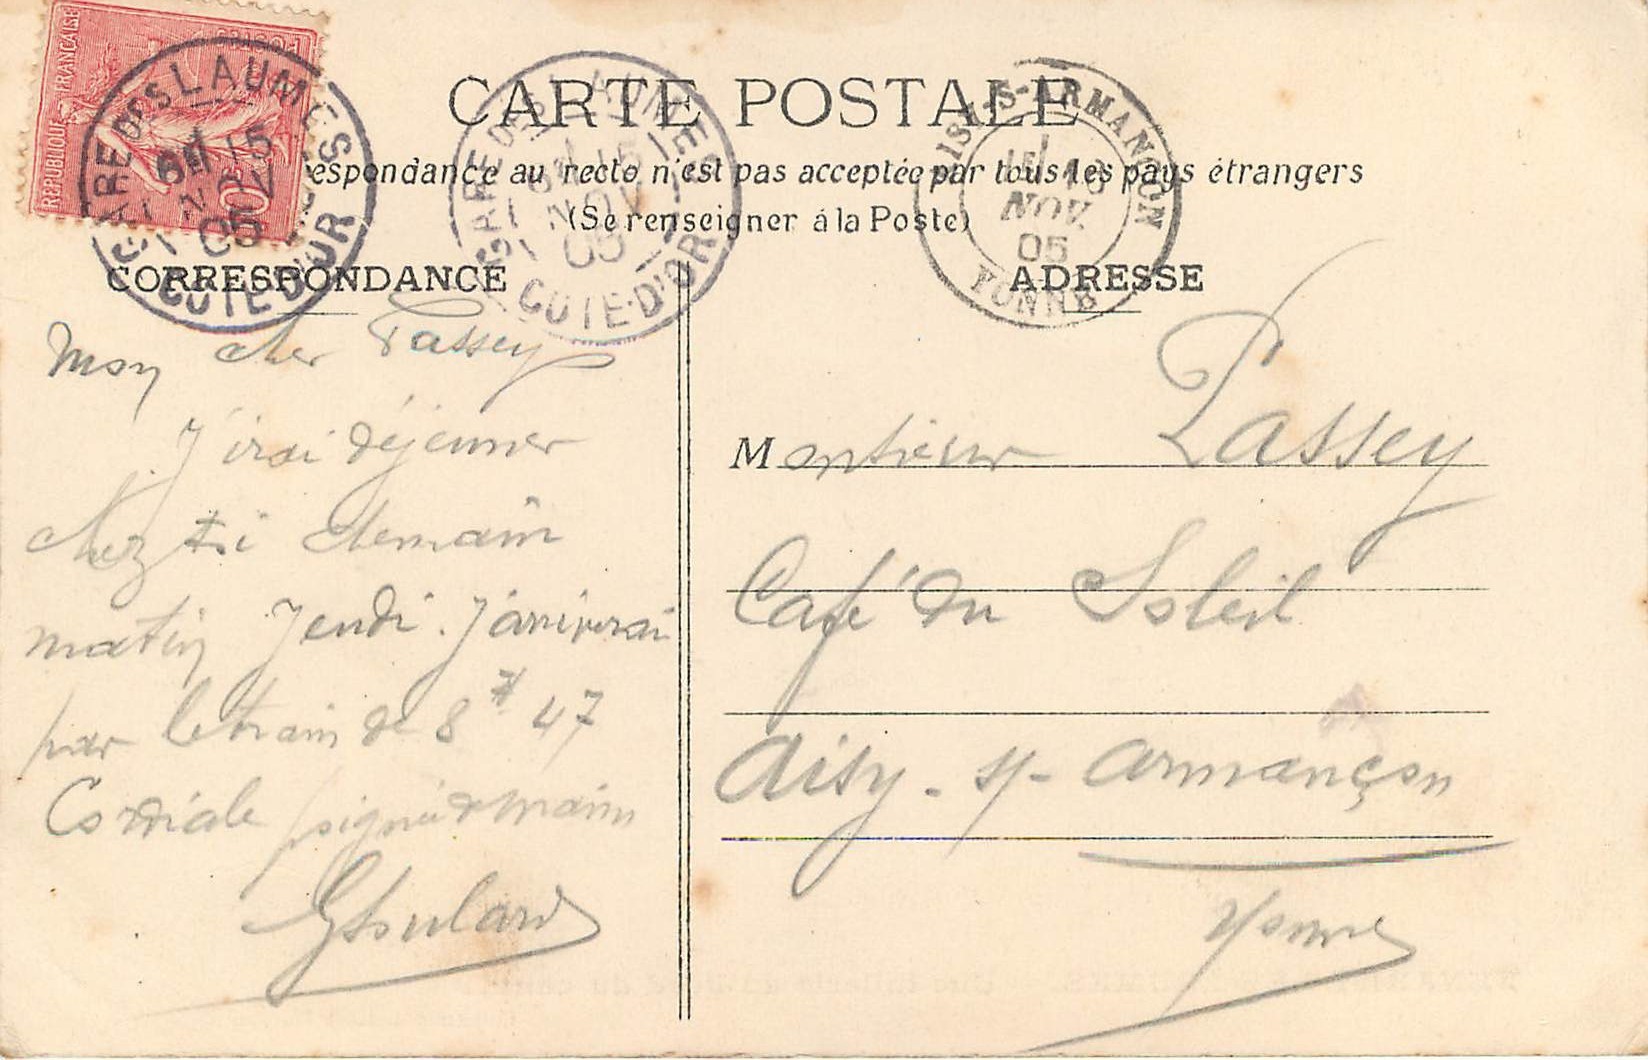 RÉPUBLIQUE FRANÇAISE
POSTES
10
GARE DES LAUMES
15
NOV
05
COTE-D'OR
GARE DES LAUMES
15
NOV
05
COTE-D'OR
AISY-S-ARMANÇON
16
NOV.
05
YONNE
CARTE POSTALE
respondance au recto n'est pas acceptée par tous les pays étrangers
(Se renseigner à la Poste)
CORRESPONDANCE
Mon cher Passey
J'irai déjeuner
chez toi demain
matin Jeudi. J'arriverai
par le train de 8 h 47
Cordiale poignée de main
ADRESSE
Monsieur Passey
Café du Soleil
Aisy-s/-Armançon
Yonne